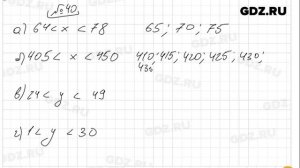 GDZ.RU
№540
а) 64 < x < 78 65; 70; 75
б) 405 < x < 450 410; 415; 420; 425; 430;
436
в) 24 < y < 49
г) 1 < y < 30
GDZ.RU